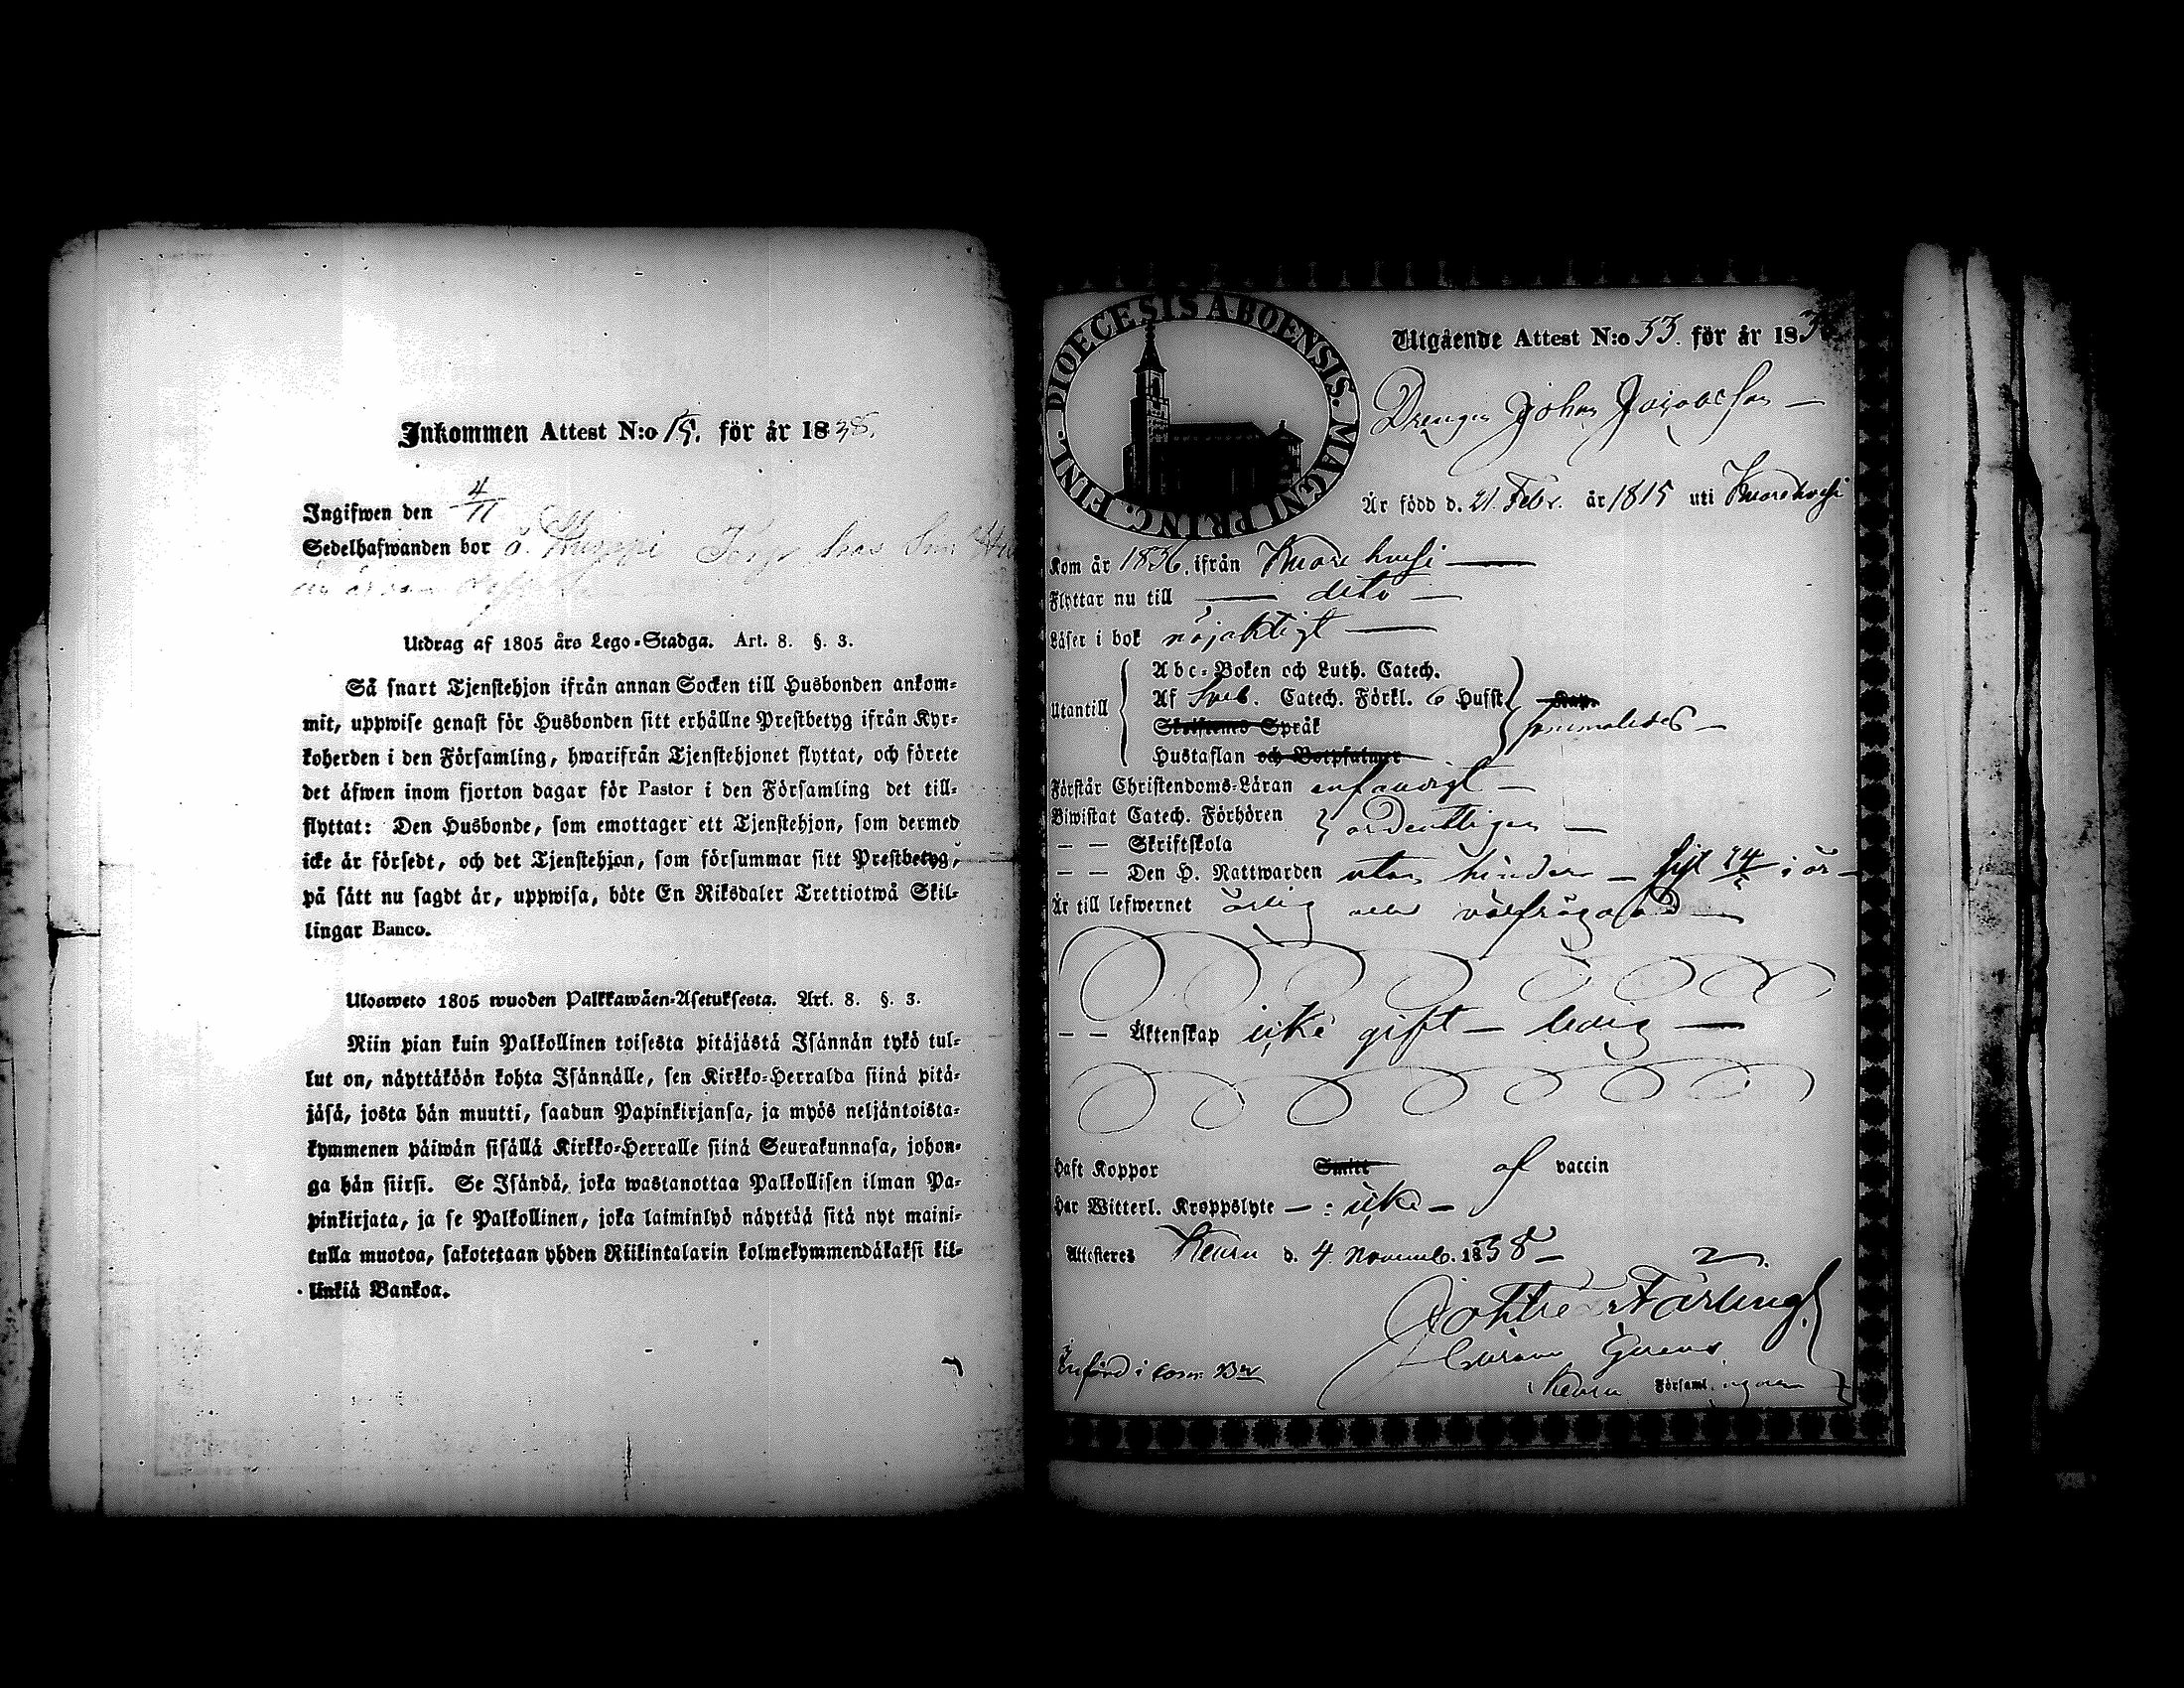 Inkommen Attest N:o 15. för år 1838.
Ingifwen den 4/11
Sedelhafwanden bor å
Utdrag af 1805 års Lego-Stadga. Art. 8. §. 3.
Så snart Tjenstehjon ifrån annan Socken till Husbonden ankom-
mit, uppwise genast för Husbonden sitt erhållne Prestbetyg ifrån Kyr-
koherden i den Församling, hwarifrån Tjenstehjonet flyttat, och förete
det äfwen inom fjorton dagar för Pastor i den Församling det till-
flyttat: Den Husbonde, som emottager ett Tjenstehjon, som dermed
icke är försedt, och det Tjenstehjon, som försummar sitt Prestbetyg,
på sätt nu sagdt är, uppwisa, böte En Riksdaler Trettiotwå Skil-
lingar Banco.
Ulosweto 1805 wuoden Palkkawäen-Asetuksesta. Art. 8. §. 3.
Niin pian kuin Palkollinen toisesta pitäjästä Isännän tykö tul-
lut on, näyttäköön kohta Isännälle, sen Kirkko-Herralda siinä pitä-
jäsä, josta hän muutti, saadun Papinkirjansa, ja myös neljäntoista-
kymmenen päiwän sisällä Kirkko-Herralle siinä Seurakunnasa, johon-
ga hän siirsi. Se Isändä, joka wastanottaa Palkollisen ilman Pa-
pinkirjata, ja se Palkollinen, joka laiminlyö näyttää sitä nyt maini-
tulla muotoa, sakotetaan yhden Riikintalarin kolmekymmendäkaksi kil-
linkiä Bankoa.
DIOECESIS ABOENSIS. MAGNI PRINC. FINL.
Utgående Attest N:o 33. för år 1838
Drengen Johan Jacobsson
Är född d. 21 Febr. år 1815 uti Kuorehvesi
Kom år 1836. ifrån Kuorehvesi
Flyttar nu till dito
Läser i bok nöjaktigt
Utantill
Abc-Boken och Luth. Catech.
Af Sveb. Catech. Förkl. 6 Hufst
Skriftenes Språk
Hustaflan och Botpsalmer
sammaledes
Förstår Christendoms-Läran enfaldigt
Biwistat Catech. Förhören
ordentligen
— — Skriftskola
— — Den H. Nattwarden utan hinder – sist i år
Är till lefwernet ärlig och välfrägdad
— — Äktenskap icke gift – ledig
Haft Koppor Smitt af vaccin
Har Witterl. Kroppslyte – : icke –
Attesteres Keuru d. 4 Novemb. 1838
Införd i
Keuru Församl.